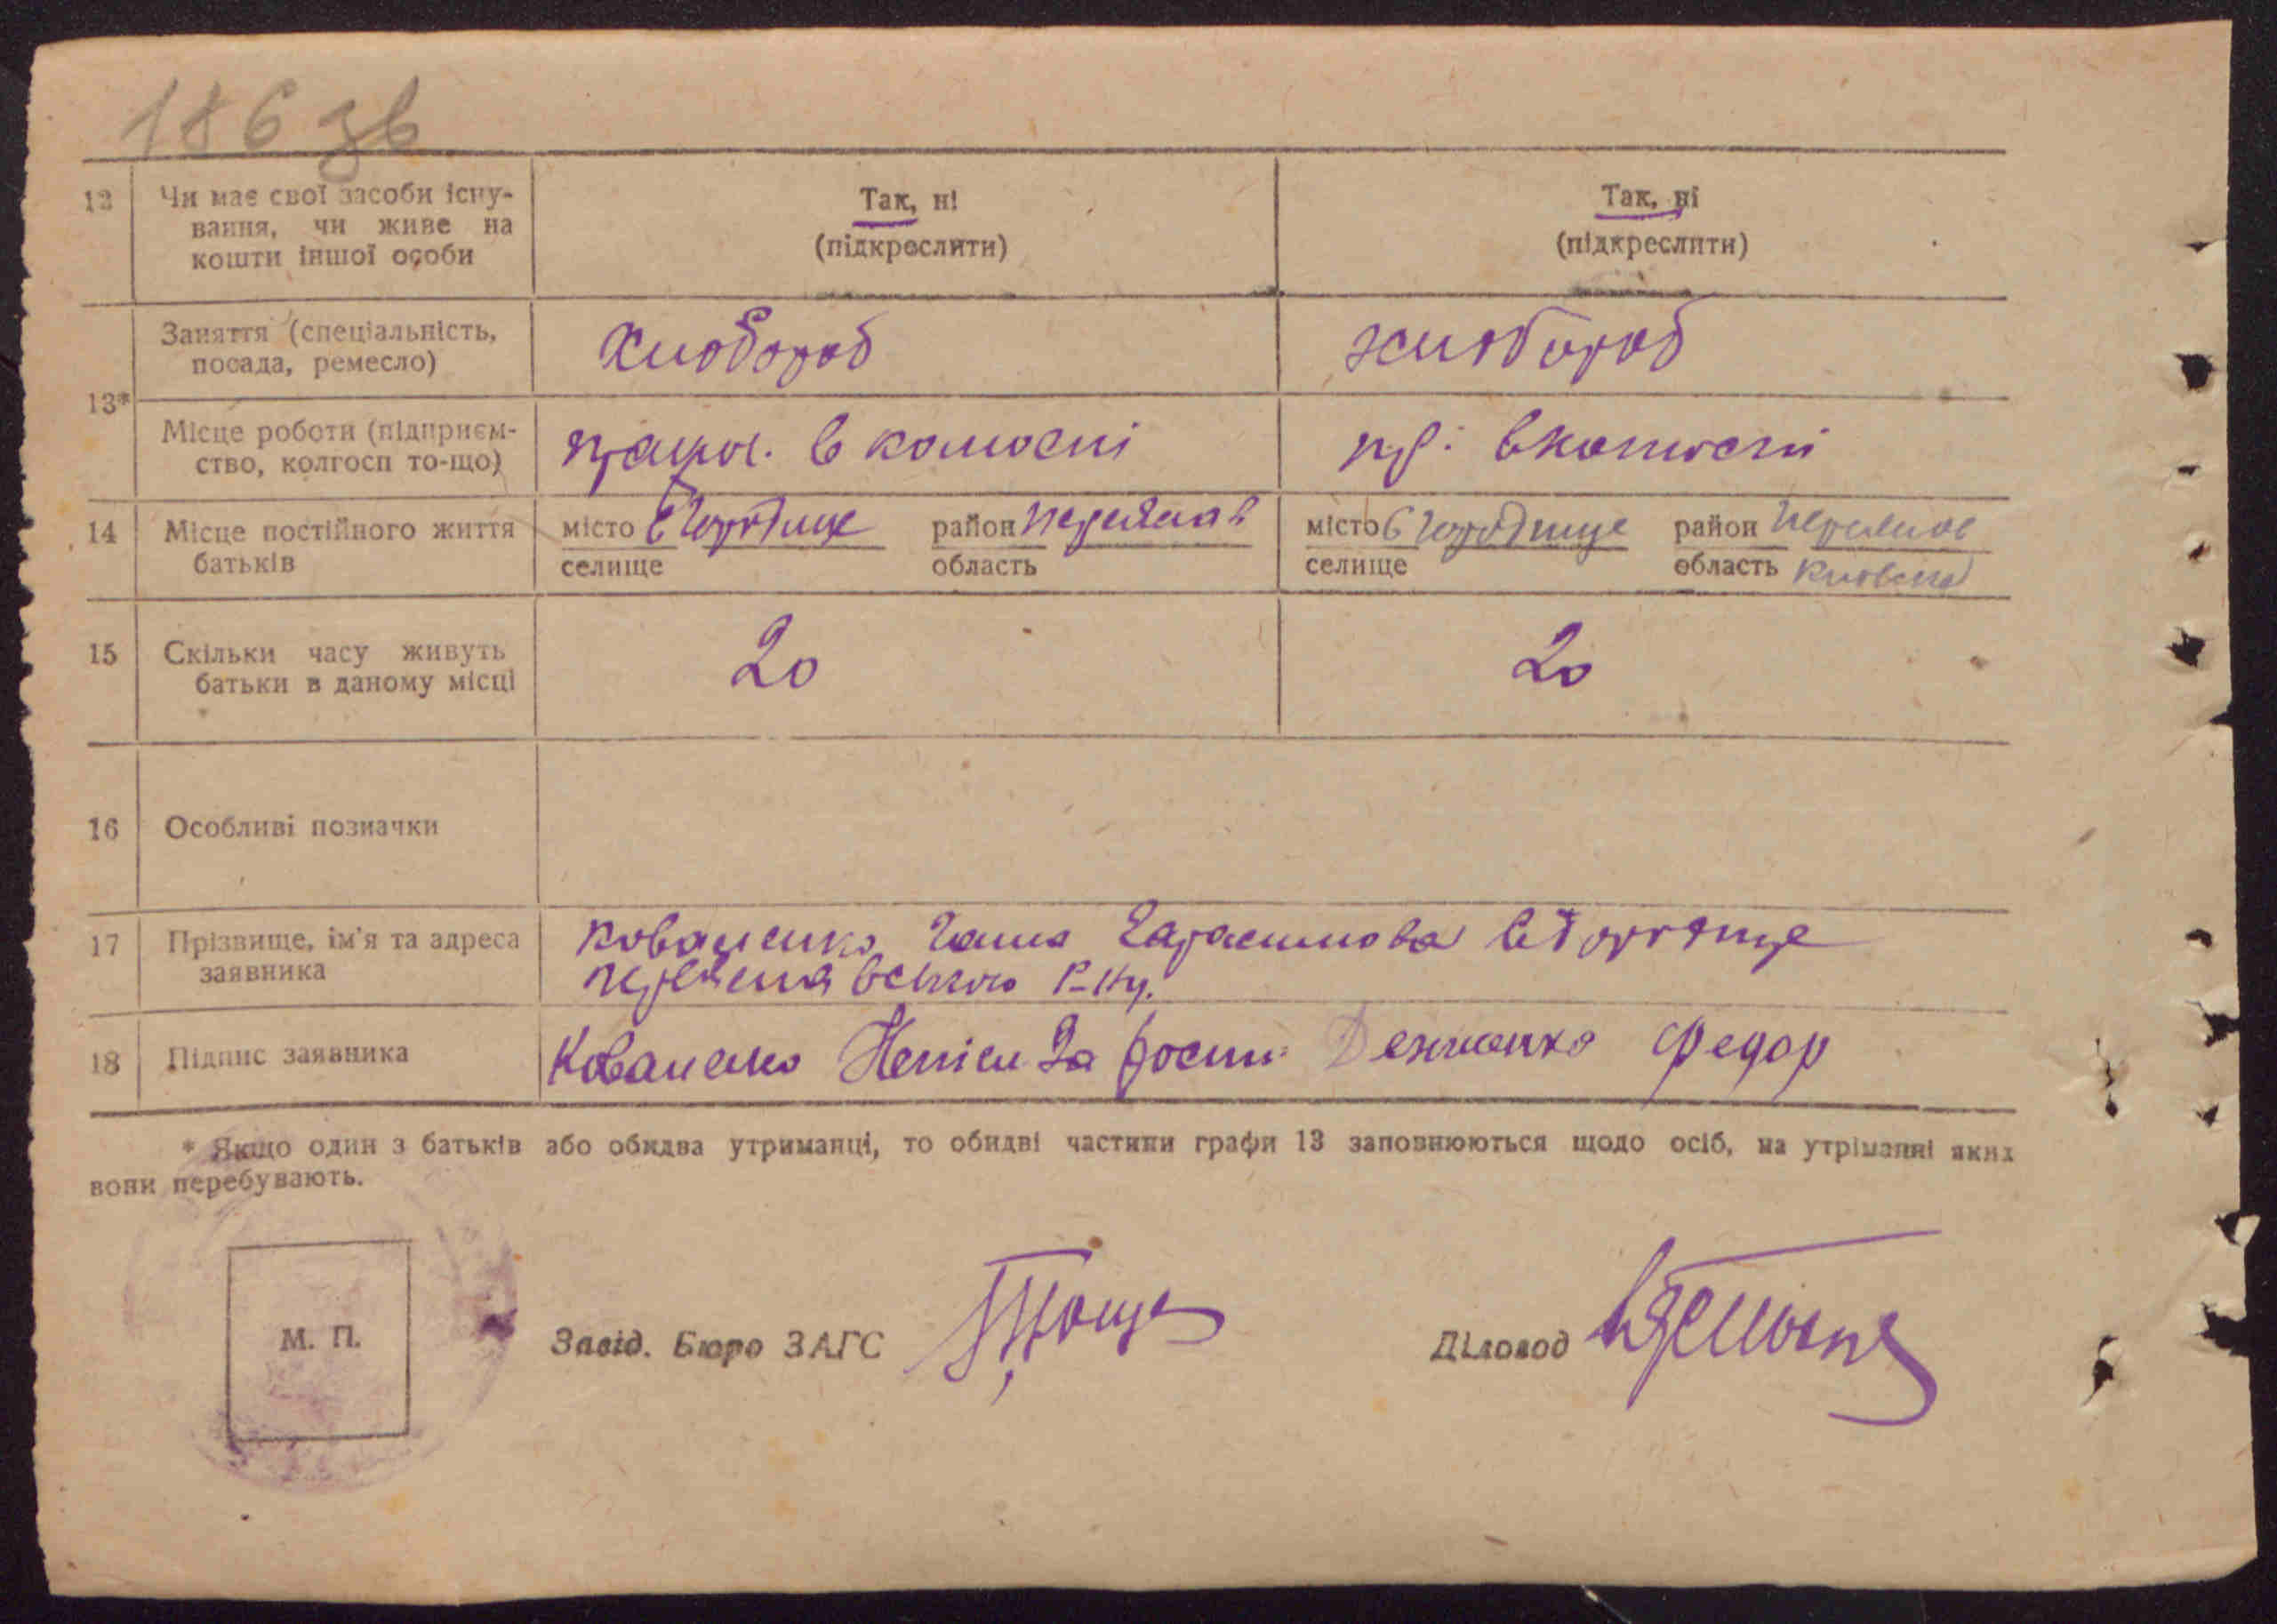 186 зв
12 Чи має свої засоби існу- Так, ні Так, ні
вання, чи живе на (підкреслити) (підкреслити)
кошти іншої особи
Заняття (спеціальність, Хлібороб хлібороб
посада, ремесло)
13*
Місце роботи (підприєм- працює. в колгоспі пр: в колгоспі
ство, колгосп то-що)
14 Місце постійного життя місто с Городище район Переяслав місто с Городище район Переяслав
батьків селище область селище область Київська
15 Скільки часу живуть 20 20
батьки в даному місці
16 Особливі позначки
17 Прізвище, ім'я та адреса Коваленко Ганна Гарасимовна с Городище
заявника Переяславського р-ну.
18 Підпис заявника Коваленко Неписм За росп. Федор
* Якщо один з батьків або обидва утриманці, то обидві частини графи 13 заповнюються щодо осіб, на утріманні яких
вони перебувають.
М. П. Завід. Бюро ЗАГС Діловод